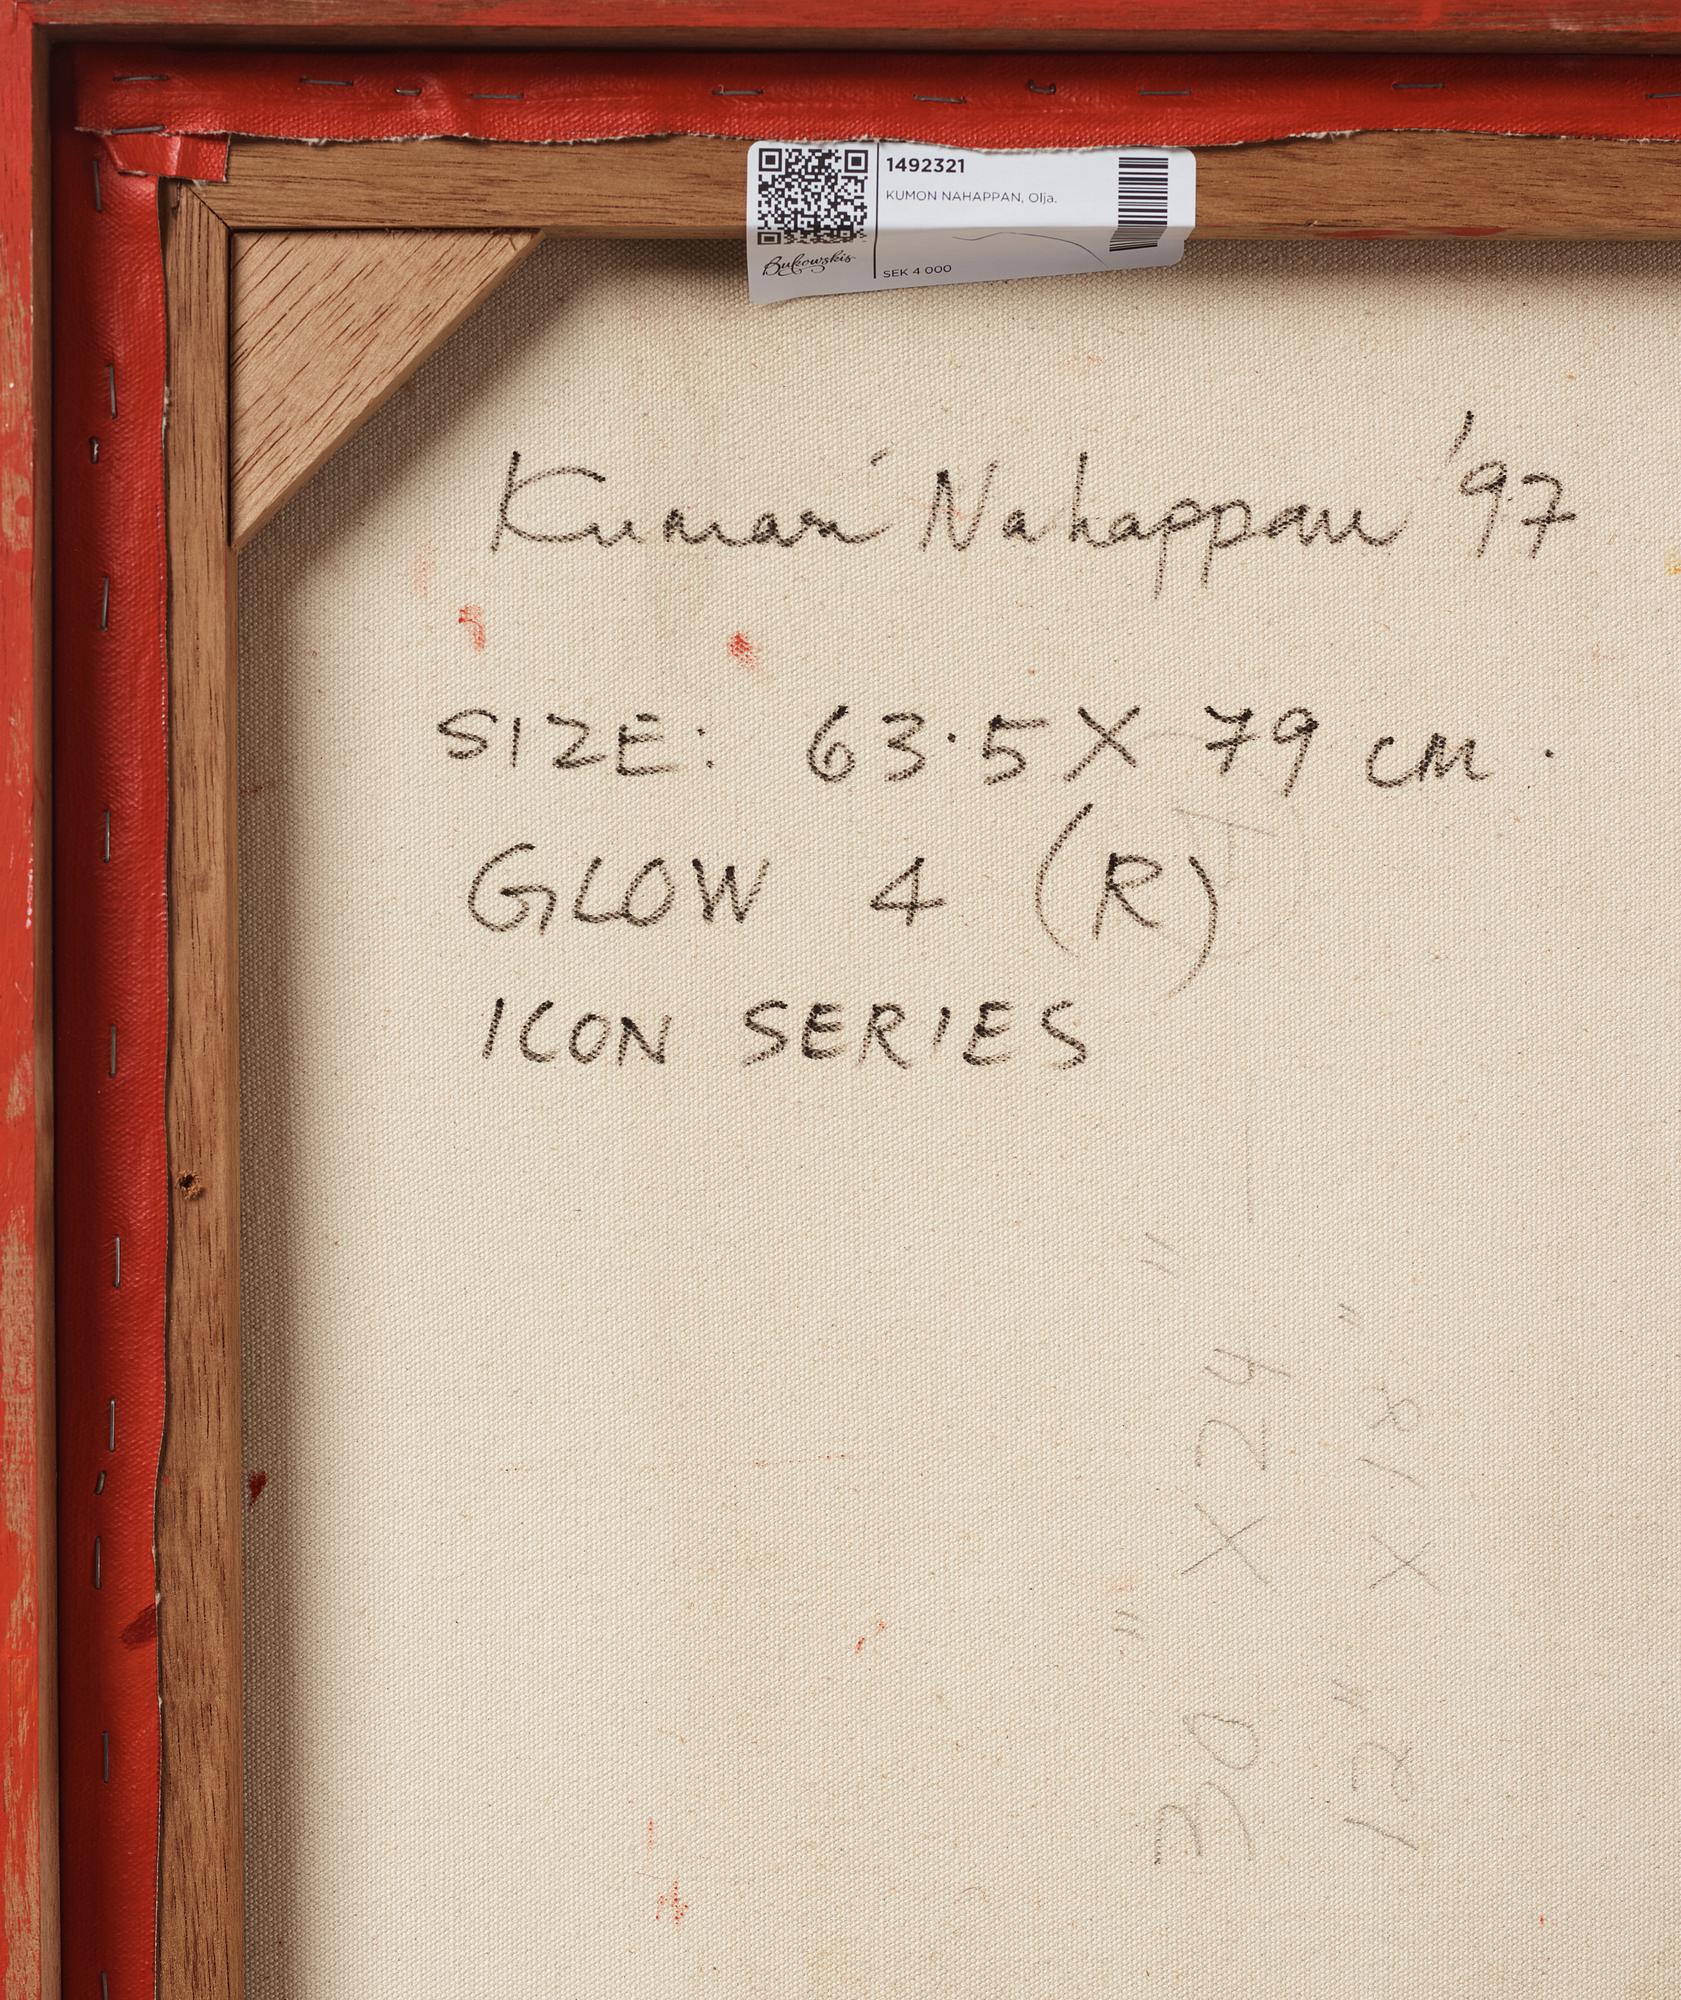 1492321
KUMON NAHAPPAN, Olja.
Bukowskis
SEK 4 000
Kumari Nahappan '97
SIZE: 63.5 X 79 CM.
GLOW 4 (R)
ICON SERIES
30" X 24"
12" X 18"